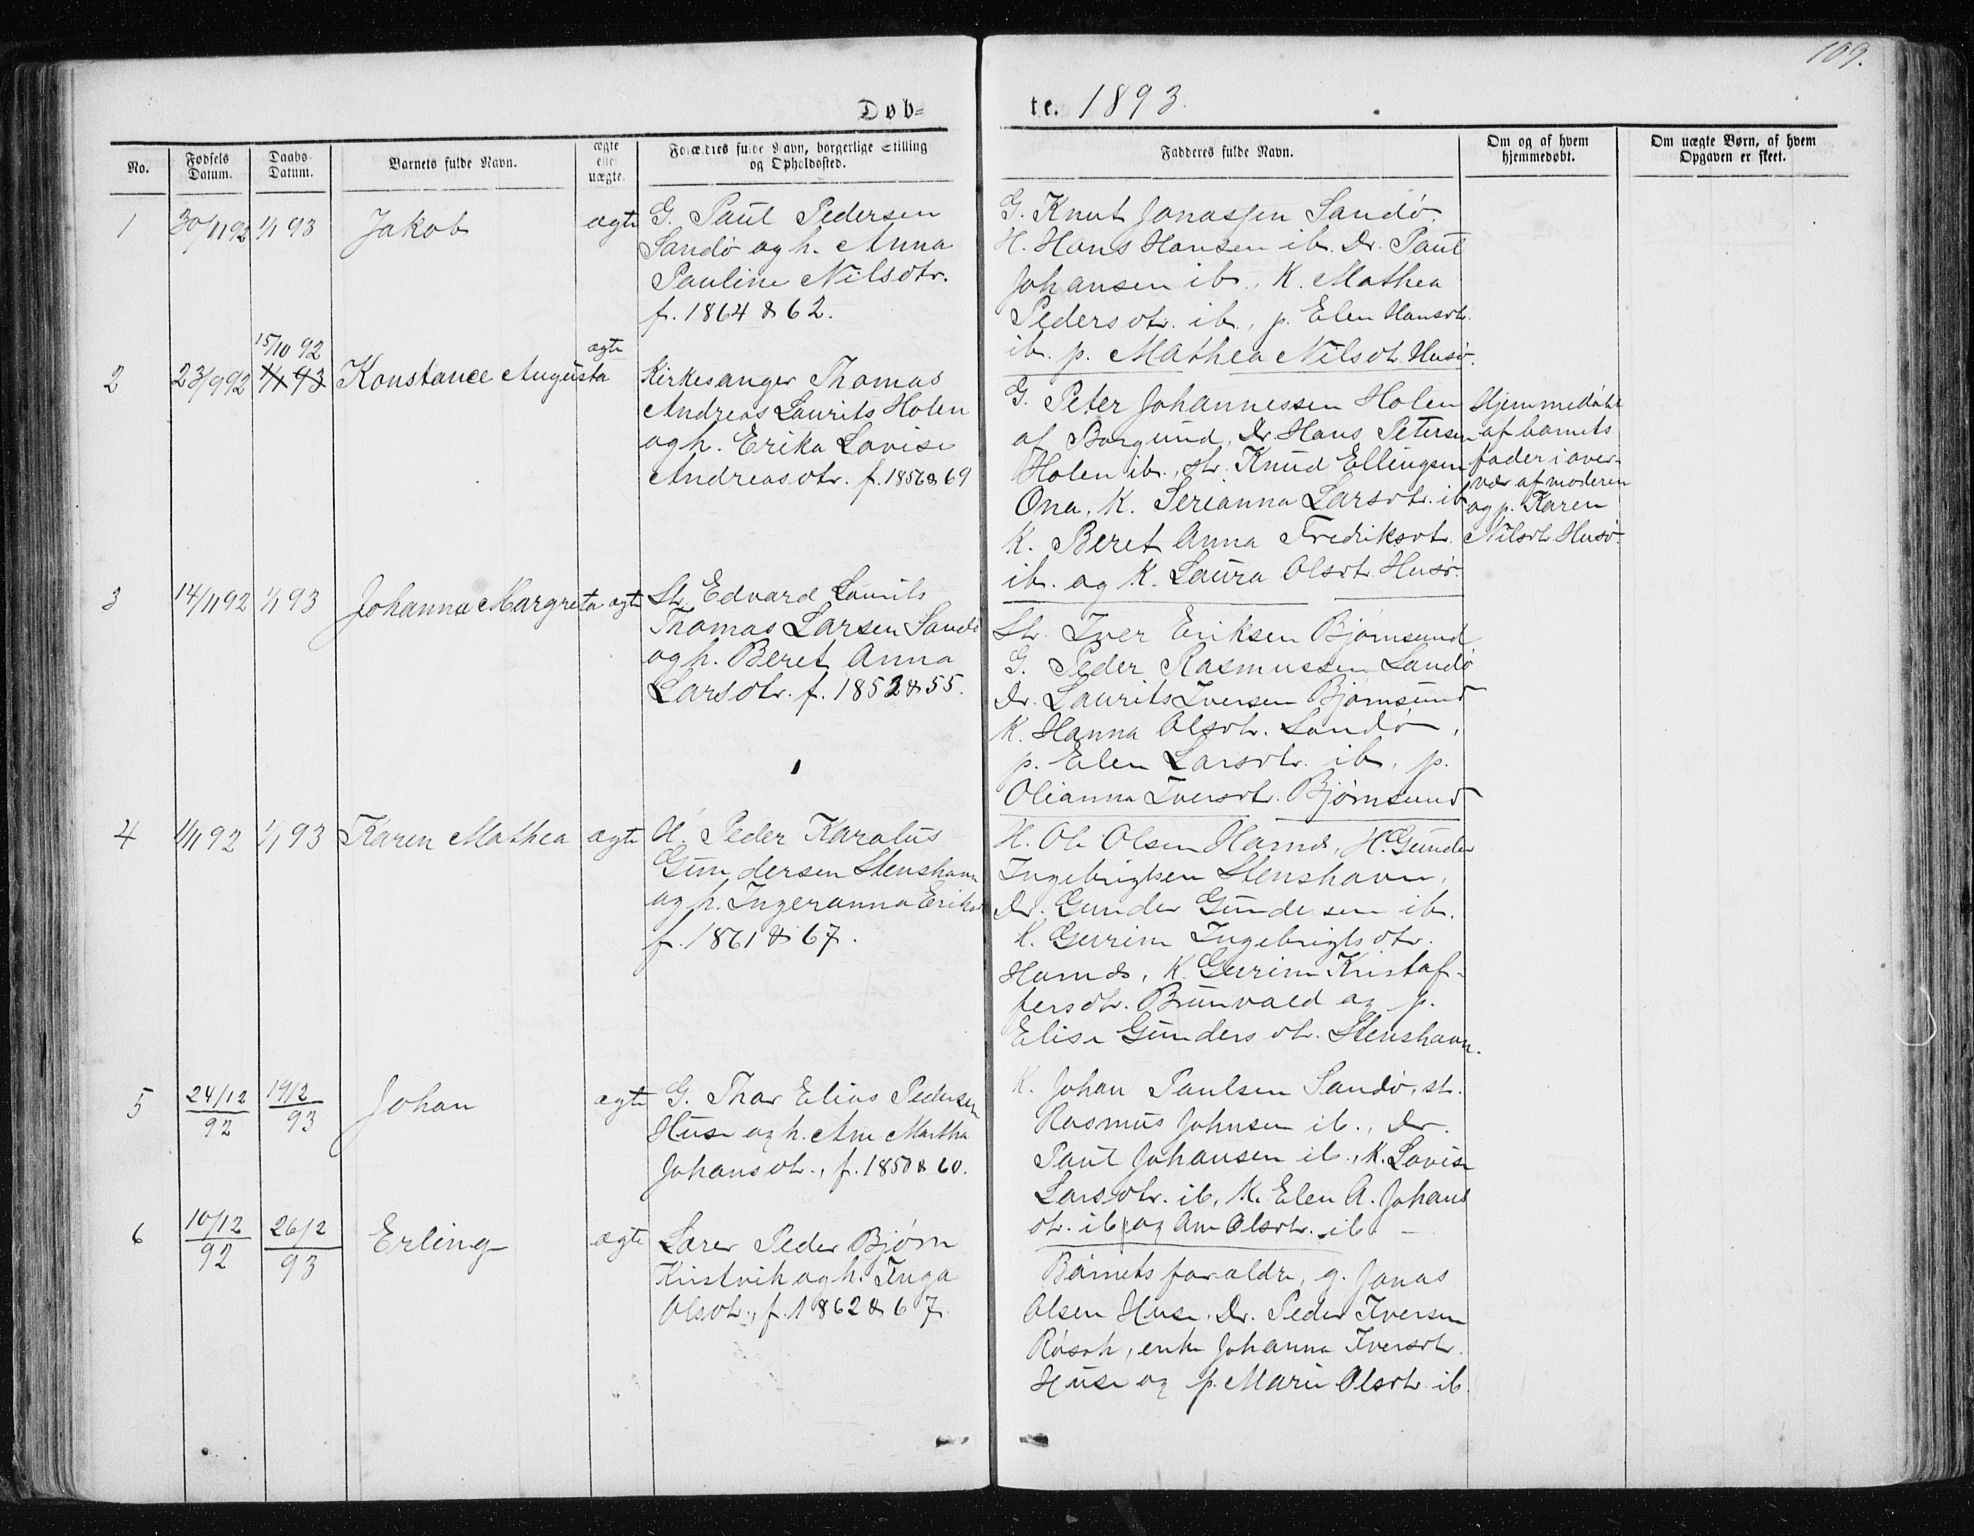 109.
Døb=
te. 1893.
No.
Fødsels Datum.
Daabs Datum.
Barnets fulde Navn.
ægte eller uægte.
Forældres fulde Navn, borgerlige Stilling og Opholdssted.
Fadderes fulde Navn.
Om og af hvem hjemmedøbt.
Om uægte Børn, af hvem Opgaven er skeet.
1
30/11 92
1/1 93
Jakob
ægte
G. Paul Pedersen
Sandø og h. Anna
Pauline Nilsdtr.
f. 1864 & 62.
G. Knut Jonassen Sandø.
H. Hans Hansen ib. Dr. Paul
Johansen ib., K. Mathea
Pedersdtr. ib., p. Elen Hansdtr.
ib. p. Mathea Nilsdt. Husø.
2
23/9 92
15/10 92
1/1 93
Konstance Augusta
ægte
Kirkesanger Thomas
Andreas Laurits Holen
og h. Erika Lovise
Andreasdtr. f. 1856 & 69
G. Peter Johannessen Holen
af Borgund, Dr. Hans Petersen
Holen ib., str. Knud Ellingsen
Ona, K. Serianna Larsdtr. ib
K. Beret Anna Fredriksdt.
ib. og K. Laura Olsdt. Husø.
Hjemmedøbt
af barnets
fader i over-
vær af moderen
og p. Karen
Nilsdt. Husø.
3
14/11 92
1/1 93
Johanna Margreta
ægte
St. Edvard Laurits
Thomas Larsen Sandø
og h. Beret Anna
Larsdtr. f. 1852 & 55.
Str. Iver Eriksen Bjørnsund
G. Peder Rasmussen Sandø
Dr. Laurits Iversen Bjørnsund
K. Hanna Olsdtr. Sandø,
p. Elen Larsdtr. ib, p.
Olianna Iversdt. Bjørnsund
4
1/11 92
1/1 93
Karen Mathea
ægte
H. Peder Karolus
Gundersen Stenshavn
og h. Ingeranna Eriksd
f. 1861 & 67.
H. Ole Olsen Harnes, H. Gunder
Ingebrigtsen Stenshavn,
Dr. Gunder Gundersen ib.
K. Gurine Ingebrigtsdtr.
Harnes, K. Gurine Kristof-
fersdtr. Brunvald og p.
Elise Gundersdt. Stenshavn.
5
24/12
92
19/2
93
Johan
ægte
G. Thor Elias Pedersen
Huse og h. Ane Martha
Johansdt., f. 1850 & 60.
K. Johan Paulsen Sandø, st.
Rasmus Johnsen ib., Dr.
Paul Johansen ib., K. Lovise
Larsdtr. ib, K. Elen A. Johans
dt. ib og Ane Olsdtr. ib -
6
10/12
92
26/2
93
Erling
ægte
Lærer Peder Bjørn
Kristvik og h. Inga
Olsdt., f. 1862 & 67.
Barnets forældre, g. Jonas
Olsen Huse, Dr. Peder Iversen
Røsok, enke Johanna Iversdt.
Huse og p. Marie Olsdt. ib.